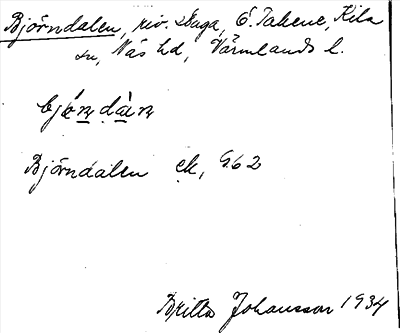 Björndalen, riv. stuga, Ö. Takene, Kila
sn, Näs hd, Värmlands l.
bjö́ɳ ḍàɳ
Björndalen ek, G62
Britta Johansson 1934